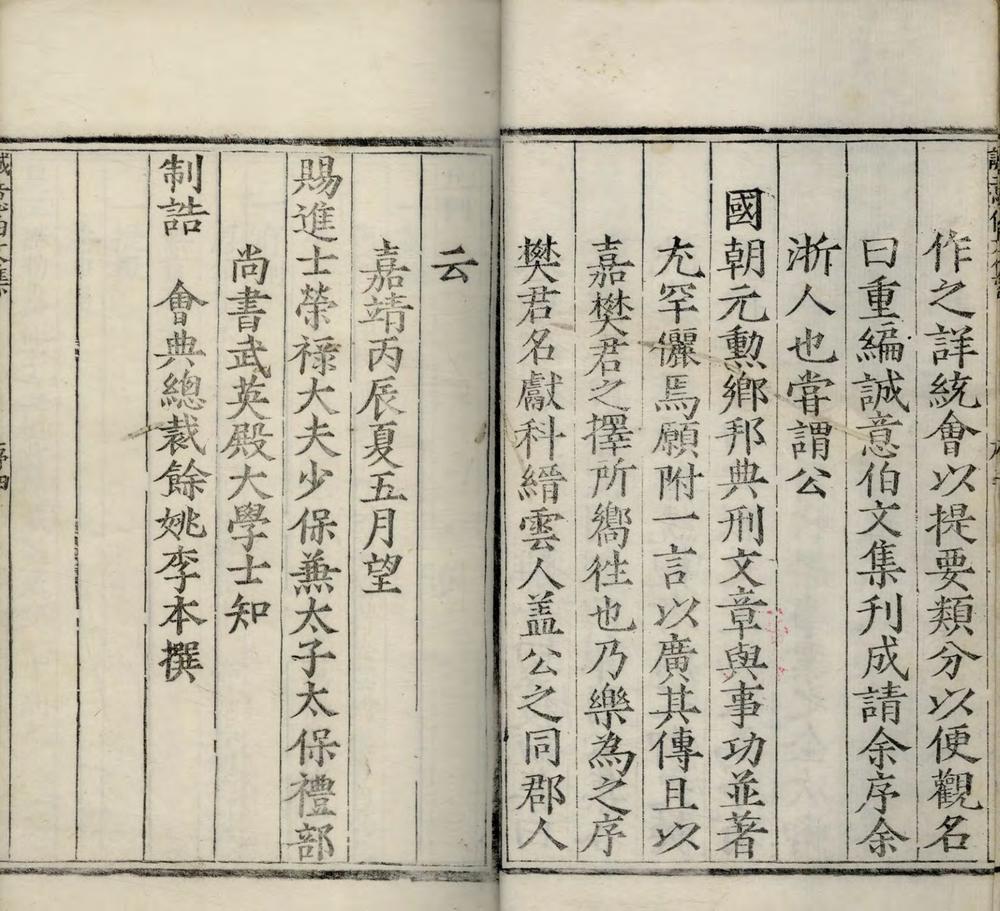 作之詳統會以提要類分以便觀名
曰重編誠意伯文集刋成請余序余
浙人也嘗謂公
國朝元勳鄉邦典刑文章與事功並著
尤罕儷焉願附一言以廣其傳且以
嘉樊君之擇所嚮徃也乃樂為之序
樊君名獻科縉雲人盖公之同郡人
云
嘉靖丙辰夏五月望
賜進士榮祿大夫少保兼太子太保禮部
尚書武英殿大學士知
制誥 會典總裁餘姚李本撰
序四